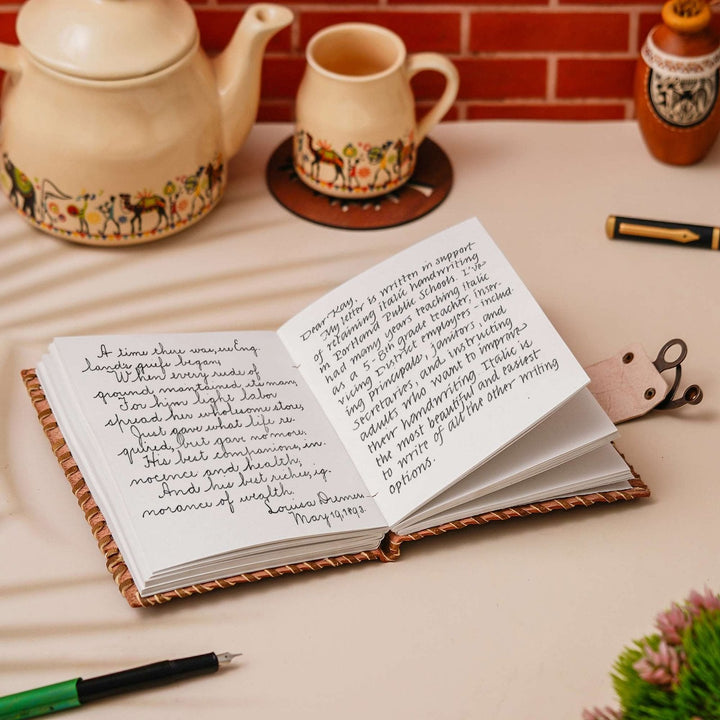 A time there was, ere Eng.
lands griefs began,
When every rude of
ground maintained its man,
For him light labor
spread her wholesome store,
Just gave what life re.
quired, but gave no more.
His best companions, in.
nocence and health;
And his best riches, ig.
norance of wealth.
Louisa
May 19, 1893.
Dear Kay,
My letter is written in support
of retaining italic handwriting
in Portland Public Schools. I've
had many years teaching italic
as a 5-8th grade teacher, inser-
vicing District employees - includ-
ing principals, janitors, and
secretaries, and instructing
adults who want to improve
their handwriting. Italic is
the most beautiful and easiest
to write of all the other writing
options.